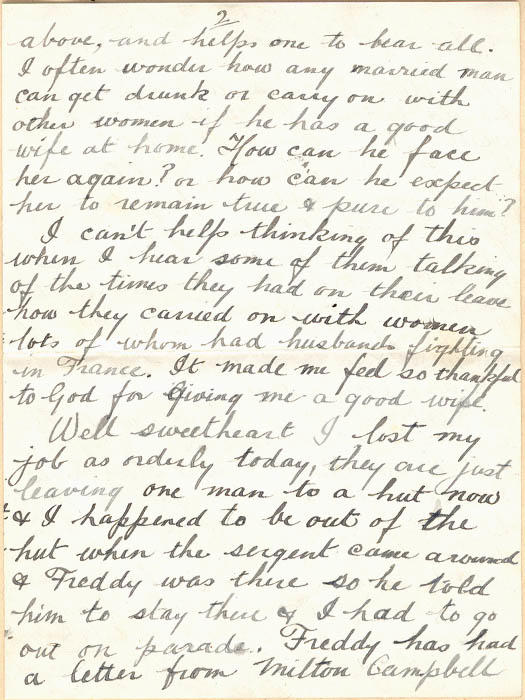 2
above, and helps one to bear all.
I often wonder how any married man
can get drunk or carry on with
other women if he has a good
wife at home. How can he face
her again? or how can he expect
her to remain true & pure to him?
I can't help thinking of this
when I hear some of them talking
of the times they had on their leave
how they carried on with women
lots of whom had husbands fighting
in France. It made me feel so thankful
to God for giving me a good wife.
Well sweetheart I lost my
job as orderly today, they are just
leaving one man to a hut now
& I happened to be out of the
hut when the sergent came around
& Freddy was there so he told
him to stay there & I had to go
out on parade. Freddy has had
a letter from Milton Campbell